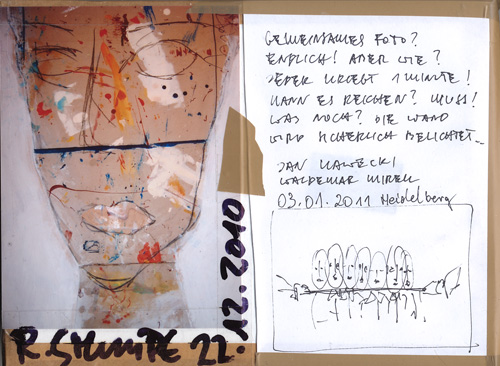 R. STUMPE 22.12.2010
GEMEINSAMES FOTO?
ENDLICH! ABER WIE?
JEDER KRIEGT 1 MINUTE!
KANN ES REICHEN? MUSS!
WAS NOCH? DIE WAND
WIRD SICHERLICH BELICHTET...
JAN NAWECKI
WALDEMAR
03.01.2011 Heidelberg